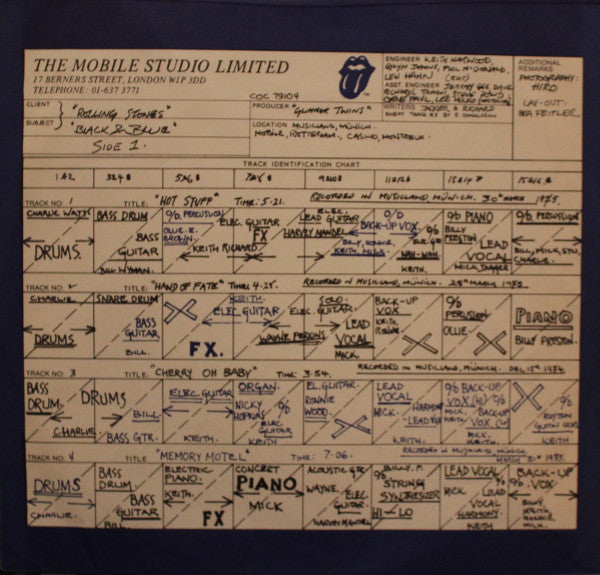 THE MOBILE STUDIO LIMITED
17 BERNERS STREET, LONDON W1P 3DD
TELEPHONE: 01-637 3771
COC 79104
ENGINEER KEITH HARWOOD,
GLYN JOHNS, PHIL McDONALD,
LEW HAHN
ASST ENGINEER JEREMY GEE, DAVE
GENE PAUL, LEE
WRITERS JAGGER & RICHARD
ADDITIONAL
REMARKS
PHOTOGRAPHY:
HIRO
LAY-OUT:
BEA FEITLER.
CLIENT "ROLLING STONES"
SUBJECT "BLACK & BLUE"
SIDE 1.
PRODUCER "GLIMMER TWINS"
LOCATION MUSICLAND, MÜNICH.
MOBILE, ROTTERDAM, CASINO, MONTREUX.
TRACK IDENTIFICATION CHART
1&2 3&4 5&6 7&8 9&10 11&12 13&14 15&16
TRACK NO: 1 TITLE: "HOT STUFF" TIME: 5-21. RECORDED IN MUSICLAND, MÜNICH. 30th MARCH 1975.
CHARLIE WATTS
DRUMS.
BASS DRUM
BASS
GUITAR
BILL WYMAN.
O/D PERCUSSION
OLLIE E.
BROWN.
ELEC. GUITAR
KEITH RICHARD
FX
ELEC.
LEAD GUITAR
HARVEY MANDEL
O/D
BACK-UP VOX.
BILLY, RONNIE,
KEITH, MICK.
O/D
ELEC. GTR
WAH-WAH
KEITH.
O/D PIANO
BILLY
PRESTON
LEAD
VOCAL
MICK JAGGER
O/D PERCUSSION
BILL, MICK,
CHARLIE.
TRACK NO: 2 TITLE: "HAND OF FATE" TIME: 4-25. RECORDED IN MUSICLAND, MÜNICH. 25th MARCH 1975.
CHARLIE
DRUMS
SNARE DRUM
BASS
GUITAR
BILL.
FX.
KEITH.
ELEC GUITAR
WAYNE PERKINS
SOLO.
ELEC. GUITAR
LEAD
VOCAL
MICK.
BACK-UP
VOX
KEITH
O/D
PERCUSION
OLLIE
PIANO
BILLY PRESTON.
TRACK NO: 3 TITLE: "CHERRY OH BABY" TIME: 3-54. RECORDED IN MUSICLAND, MÜNICH. DEC 15th 1974.
BASS
DRUM.
CHARLIE.
DRUMS
BILL
BASS GTR.
ELEC. GUITAR
KEITH.
ORGAN.
NICKY
HOPKINS
O/D
ELEC
GUITAR
KEITH.
EL. GUITAR.
RONNIE
WOOD.
LEAD
VOCAL
MICK.
HARMONY
LEAD VOX
KEITH.
O/D BACK-UP
VOX (1)
MICK,
KEITH.
O/D
BACK-UP
VOX (2)
MICK.
KEITH.
O/D
RHYTHM
KEITH.
TRACK NO: 4 TITLE: "MEMORY MOTEL" TIME: 7-06. RECORDED IN MUSICLAND, MÜNICH.
MARCH 31st 1975.
DRUMS
CHARLIE.
BASS
DRUM
BASS
GUITAR
BILL.
ELECTRIC
PIANO.
KEITH.
FX
CONCERT
PIANO
MICK
ACOUSTIC GTR
WAYNE
ELEC.
GUITAR.
HARVEY MANDEL
BILLY. P.
O/D
STRING
SYNTHESIZER
HI-LO
LEAD VOCAL
MICK
LEAD
VOCAL
HARMONY
KEITH
BACK-UP
O/D VOX.
BILLY,
KEITH,
RONNIE,
MICK.